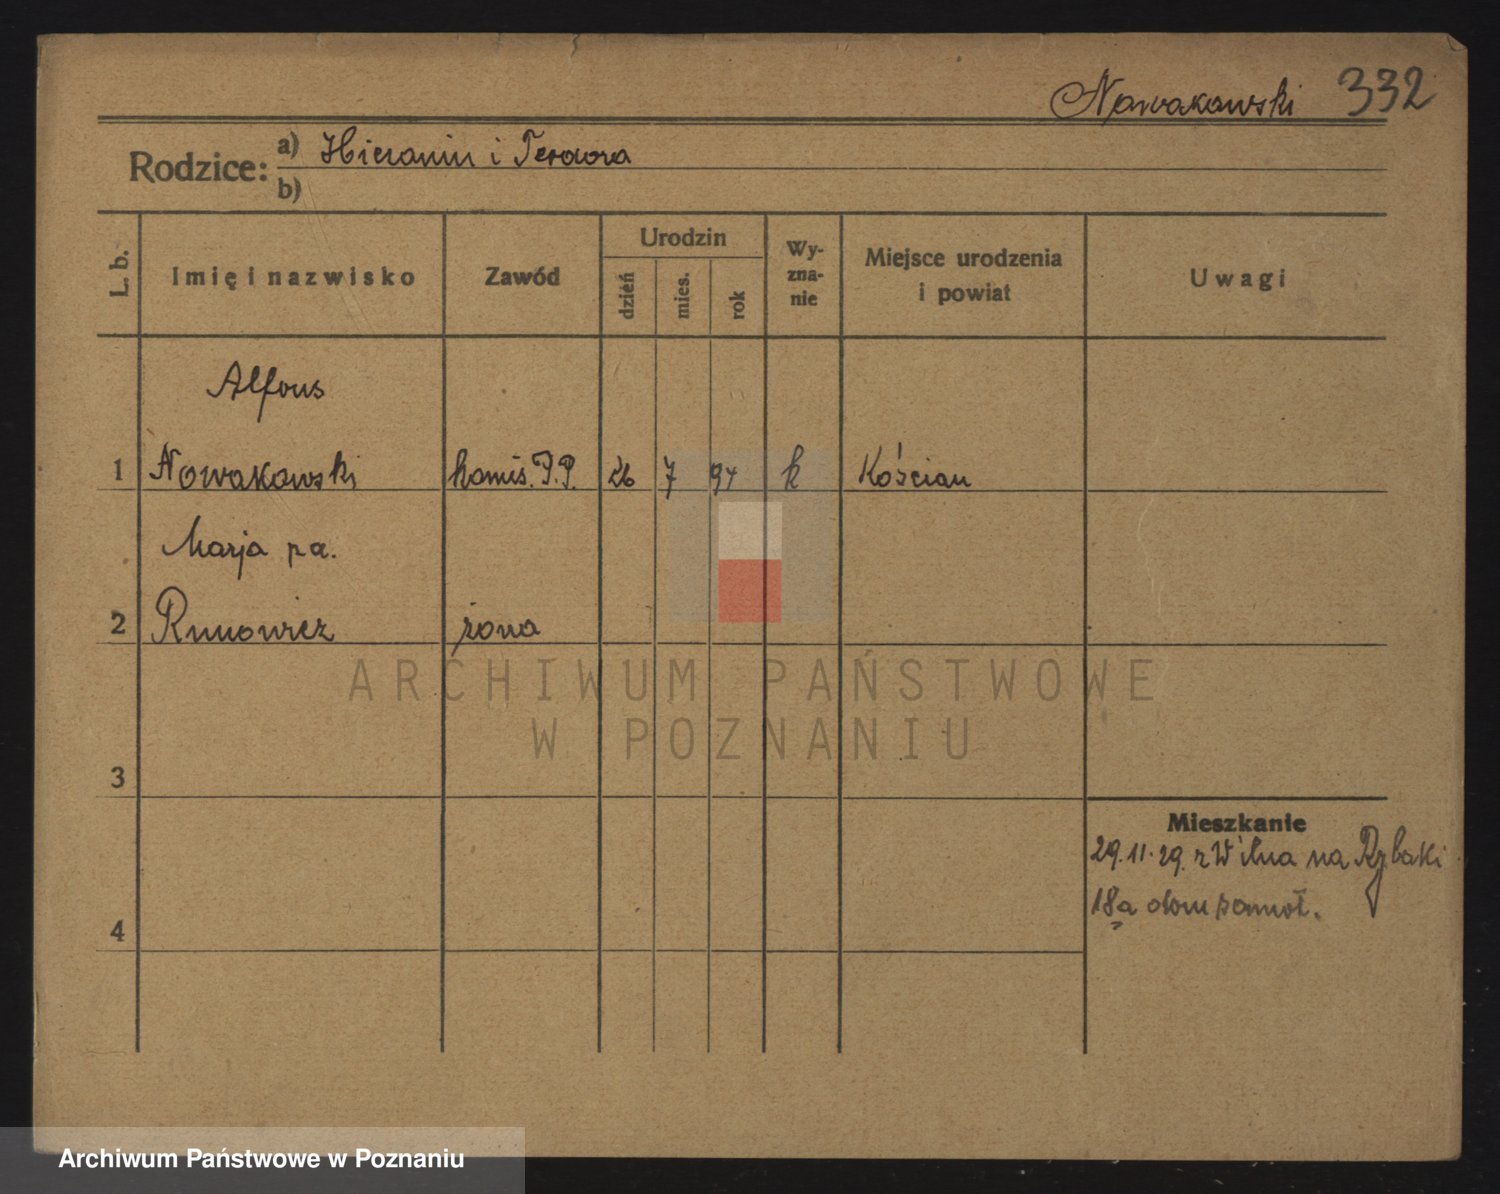 Nowakowski 332
Rodzice: a) Hieronim i Teodora
b)
L. b.
Imię i nazwisko
Zawód
Urodzin
dzień
mies.
rok
Wy-
zna-
nie
Miejsce urodzenia
i powiat
Uwagi
Alfons
1 Nowakowski komis. P.P. 26 7 94 k Kościan
Marja
2 żona
3
Mieszkanie
29.11.29. z Wilna na Rybaki
18a dom
4
ARCHIWUM PAŃSTWOWE
W POZNANIU
Archiwum Państwowe w Poznaniu